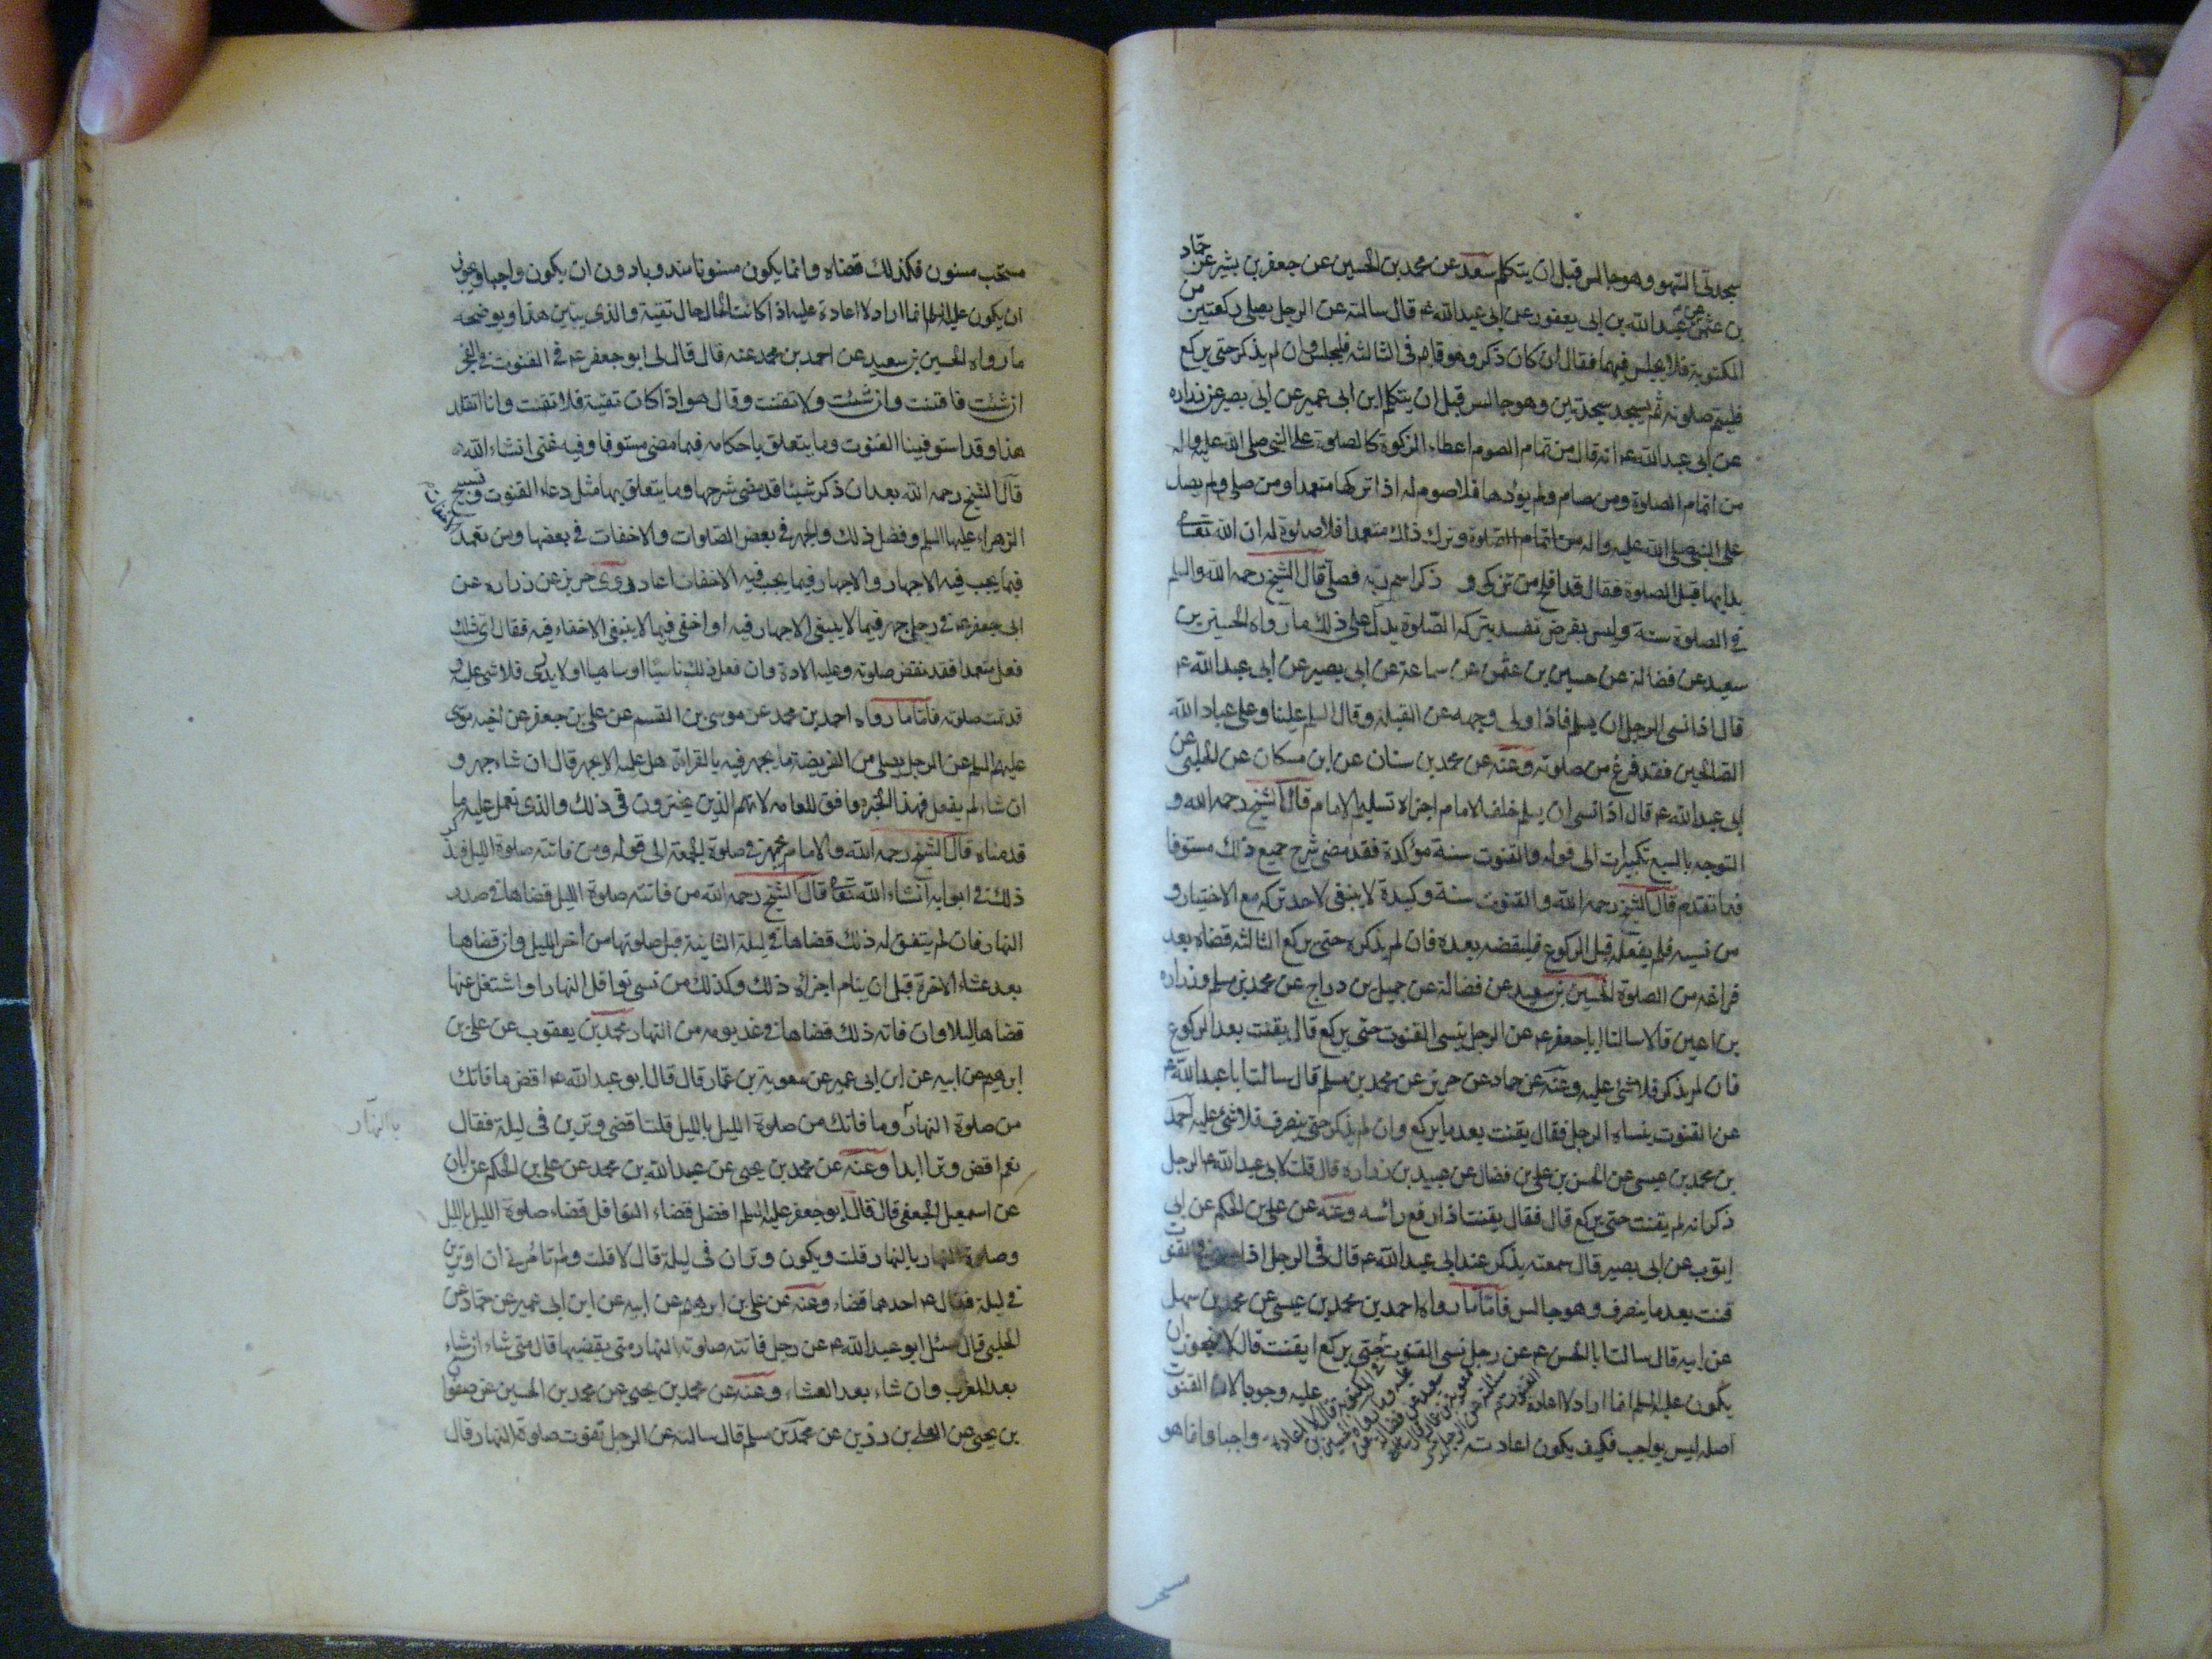 سجدتي السهو وهو جالس قبل ان يتكلم سعد عن محمد بن الحسين عن جعفر بن بشير عن حماد
بن عثمن عن عبد الله بن ابى يعفور عن ابى عبد الله ع قال سالته عن الرجل يصلى ركعتين من
المكتوبة فلا يجلس فيهما فقال ان كان ذكر وهو قايم فى الثالثة فليجلس وان لم يذكر حتى يركع
فليتم صلوته ثم يسجد سجدتين وهو جالس قبل ان يتكلم ابن ابى عمير عن ابى بصير عن زراره
عن ابى عبد الله ع انه قال من تمام الصوم اعطاء الزكوة كالصلوة على النبي صلى الله عليه واله
من اتمام الصلوة ومن صام ولم يؤدها فلا صوم له اذا تركها متعمدا ومن صلى ولم يصل
على النبى صلى الله عليه واله من اتمام الصلوة وترك ذلك متعمدا فلا صلوة له ان الله تعالى
بدا بها قبل الصلوة فقال قد افلح من تزكى و ذكر اسم ربه فصلى قال الشيخ رحمه الله والسلم
فى الصلوة سنة وليس بفرض تفسد بتركه الصلوة يدل على ذلك ما رواه الحسين بن
سعيد عن فضالة عن حسين بن عثمن عن سماعة عن ابى بصير عن ابى عبد الله ع
قال اذا نسى الرجل ان يسلم فاذا ولى وجهه عن القبلة وقال السلم علينا وعلى عباد الله
الصالحين فقد فرغ من صلوته وعنه عن محمد بن سنان عن ابن مسكان عن الحلبى عن
ابى عبد الله ع قال اذا نسى ان يسلم خلف الامام اجزاه تسليم الامام قال الشيخ رحمه الله و
التوجه بالسبع تكبيرات الى قوله والقنوت سنة مؤكدة فقد مضى شرح جميع ذلك مستوفا
فيما تقدم قال الشيخ رحمه الله والقنوت سنة وكيدة لا ينبغى لاحد تركه مع الاختيار و
من نسيه فلم يفعله قبل الركوع فليقضه بعده فان لم يذكره حتى يركع الثالثه قضاه بعد
فراغه من الصلوة الحسين بن سعيد عن فضالة عن جميل بن دراج عن محمد بن مسلم وزراره
بن اعين قالا سالنا ابا جعفر ع عن الرجل ينسى القنوت حتى يركع قال يقنت بعد الركوع
فان لم يذكر فلا شئ عليه وعنه عن حماد عن حريز عن محمد بن مسلم قال سالت ابا عبد الله ع
عن القنوت ينساه الرجل فقال يقنت بعد ما يركع وان لم يذكر حتى ينصرف فلا شئ عليه احمد
بن محمد بن عيسى عن الحسن بن على بن فضال عن عبيد بن زراره قال قلت لابى عبد الله ع الرجل
ذكر انه لم يقنت حتى يركع قال فقال يقنت اذا رفع رأسه وعنه عن على بن الحكم عن ابى
ايوب عن ابى بصير قال سمعته يذكر عند ابى عبد الله ع قال فى الرجل اذا القنوت
قنت بعد ما ينصرف وهو جالس فاما ما رواه احمد بن محمد بن عيسى عن محمد بن سهل
عن ابيه قال سالت ابا الحسن ع عن رجل نسى القنوت حتى يركع ايقنت قال لا فيجوز ان
يكون عليه السلم انما اراد لا اعادة عليه وجوبا لان القنوت
اصله ليس بواجب فكيف يكون اعادته واجبا وانما هو
مستحب
مستحب مسنون فكذلك قضاه وانما يكون مسنونا مندوبا دون ان يكون واجبا ويجوز
ان يكون عليه السلم انما اراد لا اعادة عليه اذا كانت الحال حال تقية والذى يبين هذا ويوضحه
ما رواه الحسين بن سعيد عن احمد بن محمد عنه قال قال لى ابو جعفر ع فى القنوت فى الفجر
ان شئت فاقنت وان شئت ولا تقنت وقال هو اذا كان تقية فلا تقنت وانا اتقلد
هذا وقد استوفينا القنوت وما يتعلق باحكامه فيما مضى مستوفا وفيه غنى انشاء الله
قال الشيخ رحمه الله بعد ان ذكر شيئا قد مضى شرحها وما يتعلق بها مثل دعاء القنوت وتسبيح
الزهراء عليها السلم وفضل ذلك والجهر فى بعض الصلوات والاخفات فى بعضها ومن تعمد
فيما يجب فيه الاجهار والاجهار فيما يجب فيه الاخفات اعاد روى حريز عن زراره عن
ابى جعفر ع فى رجل جهر فيما لا ينبغى الاجهار فيه او اخفى فيما لا ينبغى الاخفاء فيه فقال اى ذلك
فعل متعمدا فقد نقض صلوته وعليه الادة وان فعل ذلك ناسيا او ساهيا او لا يدرى فلا شئ عليه و
قد تمت صلوته فاما ما رواه احمد بن محمد عن موسى بن القسم عن على بن جعفر عن اخيه موسى
عليهم السلم عن الرجل يصلى من الفريضة ما يجهر فيه بالقراءة هل عليه الا يجهر قال ان شاء جهر و
ان شاء لم يفعل فهذا الخبر موافق للعامه لانهم الذين يخيرون فى ذلك والذى نعمل عليه ما
قدمناه قال الشيخ رحمه الله والامام يجهر فى صلوة الجمعة الى قوله ومن فاتته صلوة الليل فيذكر
ذلك فى ابوابه انشاء الله تعالى قال الشيخ رحمه الله من فاتته صلوة الليل قضاها فى صدر
النهار فان لم يتفق له ذلك قضاها فى ليلة الثانية قبل صلوتها من اخر الليل وان قضاها
بعد عشاء الاخرة قبل ان ينام اجزاه ذلك وكذلك من نسى نوافل النهار او اشتغل عنها
قضاها ليلا وان فاته ذلك قضاها فى غد يومه من النهار محمد بن يعقوب عن على بن
ابرهيم عن ابيه عن ابن ابى عمير عن معوية بن عمار قال قال ابو عبد الله ع اقض ما فاتك
من صلوة النهار وما فاتك من صلوة الليل بالليل قلت اقضى وترين فى ليلة فقال
بالنهار
نعم اقض وترا ابدا وعنه عن محمد بن يحيى عن عبد الله بن محمد عن على بن الحكم عن ابان
عن اسمعيل الجعفى قال قال ابو جعفر عليه السلم افضل قضاء النوافل قضاء صلوة الليل بالليل
وصلوة النهار بالنهار قلت ويكون وتران فى ليلة قال لا قلت ولم تامرنى ان اوتر وترين
فى ليلة فقال ع احدهما قضاء وعنه عن على بن ابرهيم عن ابيه عن ابن ابى عمير عن حماد عن
الحلبى قال سئل ابو عبد الله ع عن رجل فاتته صلوة النهار متى يقضيها قال متى شاء ان شاء
بعد المغرب وان شاء بعد العشاء وعنه عن محمد بن يحيى عن محمد بن الحسين عن صفوان
بن يحيى عن العلاء بن رزين عن محمد بن مسلم قال سالته عن الرجل تفوت صلوة النهار قال